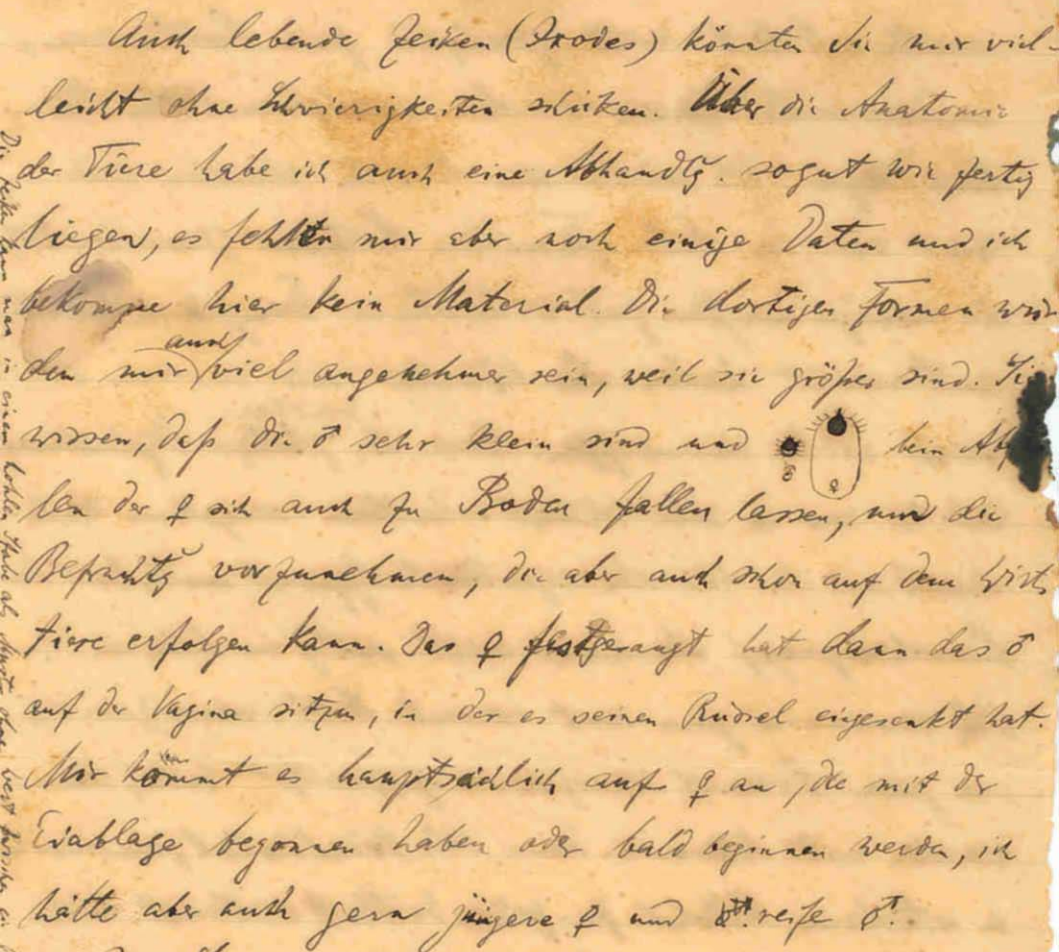 Auch lebende Zecken (Ixodes) könnten Sie mir viel-
leicht ohne Schwierigkeiten schicken. Über die Anatomie
der Tiere habe ich auch eine Abhandlg. sogut wie fertig
liegen, es fehlen mir aber noch einige Daten und ich
bekomme hier kein Material. Die dortigen Formen wür-
den mir auch viel angenehmer sein, weil sie größer sind. Sie
wissen, daß die ♂ sehr klein sind und ♂ ♀ beim Abfal-
len der ♀ sich auch zu Boden fallen lassen, um die
Befruchtg vorzunehmen, die aber auch schon auf dem Wirts
tiere erfolgen kann. Das ♀ festgesaugt hat dann das ♂
auf der Vagina sitzen, in der es seinen Rüssel eingesenkt hat.
Mir kommt es hauptsächlich auf ♀ an, die mit der
Eiablage begonnen haben oder bald beginnen werden, ich
hätte aber auch gern jüngere ♀ und reife ♂.
Die Zecken kann man in einem hohlen